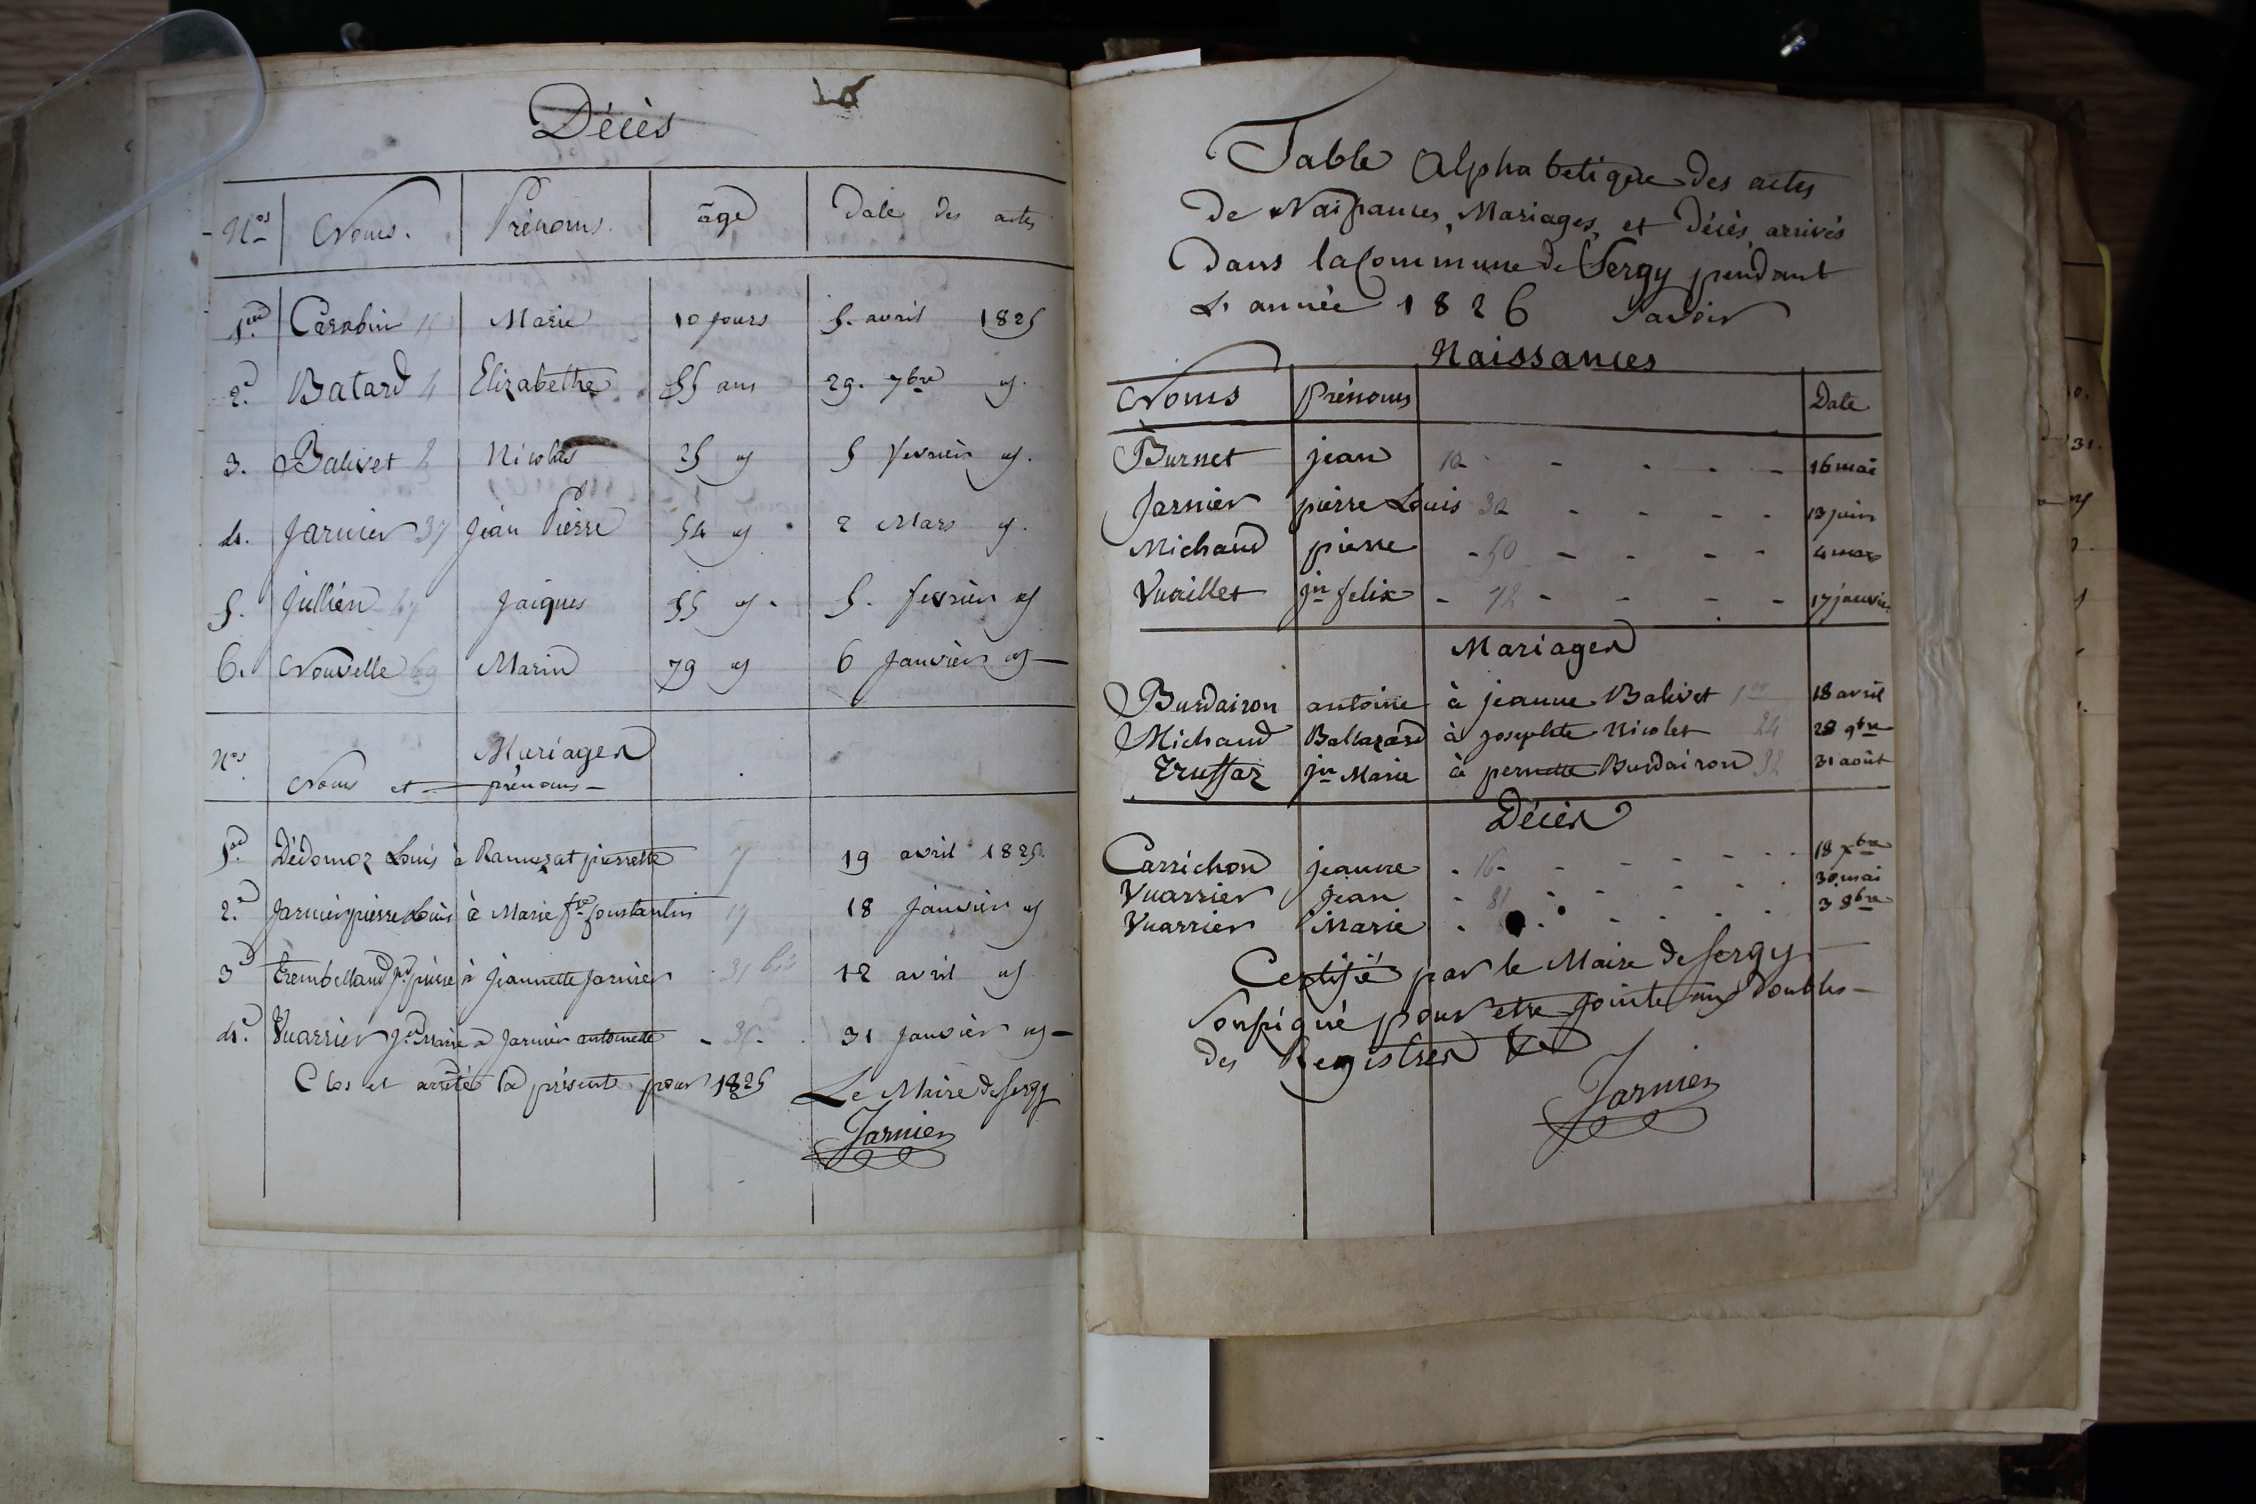 Décès
Nos Noms. Prénoms. âge Date des actes
1er Carabin Marie 10 jours 5. avril 1825
2d Batard 4 Elizabethe 55 ans 29. 7bre id.
3. Balivet 2 Nicolas 25 id 5 fevrier id.
4. Jarnier 37 Jean Pierre 54 id 2 Mars id.
5. Jullien 47 Jacques 55 id. 5. fevrier id
6. Nouvelle 69 Marin 79 id 6 Janvier id
Nos Mariages
Noms et prénoms
1er Dédomoz Louis à Ramuzat pierrette 7 19 avril 1825.
2d Jarnier pierre Louis à Marie fse Constantin 17 18 Janvier id
3d Trembelland pierre à Jeannette Jarnier 31 bis 12 avril id
4d. Vuarrier Jn Marie a Jarnier antoinette 35 31 Janvier id
Clos et arrêté la présente pour 1825 Le Maire de Sergy
Jarnier
Table Alphabetique des actes
de Naissances, Mariages, et Décès, arrivés
Dans la Commune de Sergy pendant
L'année 1826 Savoir
Naissances
Noms Prénoms Date
Burnet jean 10 16 mai
Jarnier pierre Louis 32 13 juin
Michaud pierre 50 4 mars
Vuaillet jn felix 72 17 janvier
Mariages
Burdairon antoine à jeanne Balivet 1er 18 avril
Michaud Baltazard à Josephte Nicolet 24 28 9bre
Truffaz jn Marie à pernette Burdairon 32 31 août
Décès
Carrichon jeanne 16 18 xbre
Vuarrier Jean 81 30 mai
Vuarrier Marie 3 8bre
Certifié par le Maire de Sergy
Soussigné pour etre jointe aux doubles
des Registres
Jarnier